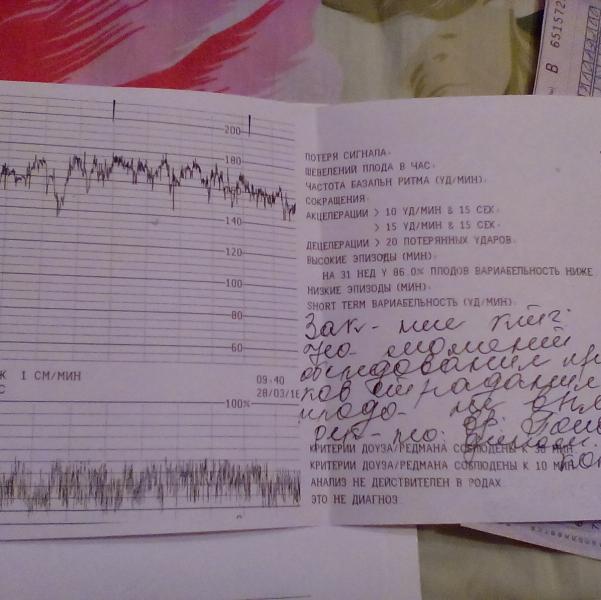 В 651572
200
180
160
140
120
100
80
60
Ж 1 СМ/МИН
09.40
28/03/18
100%
ПОТЕРЯ СИГНАЛА
ШЕВЕЛЕНИЙ ПЛОДА В ЧАС
ЧАСТОТА БАЗАЛЬН РИТМА (УД/МИН)
СОКРАЩЕНИЯ
АКЦЕЛЕРАЦИИ > 10 УД/МИН & 15 СЕК
> 15 УД/МИН & 15 СЕК
ДЕЦЕЛЕРАЦИИ > 20 ПОТЕРЯННЫХ УДАРОВ
ВЫСОКИЕ ЭПИЗОДЫ (МИН)
НА 31 НЕД У 86.0% ПЛОДОВ ВАРИАБЕЛЬНОСТЬ НИЖЕ
НИЗКИЕ ЭПИЗОДЫ (МИН)
SHORT TERM ВАРИАБЕЛЬНОСТЬ (УД/МИН)
Зак-ние
На момент
обследования при
ков страдания
плода- не
КРИТЕРИИ ДОУЗА/РЕДМАНА СОБЛЮДЕНЫ К 30 МИН
КРИТЕРИИ ДОУЗА/РЕДМАНА СОБЛЮДЕНЫ К 10 МИН
АНАЛИЗ НЕ ДЕЙСТВИТЕЛЕН В РОДАХ
ЭТО НЕ ДИАГНОЗ